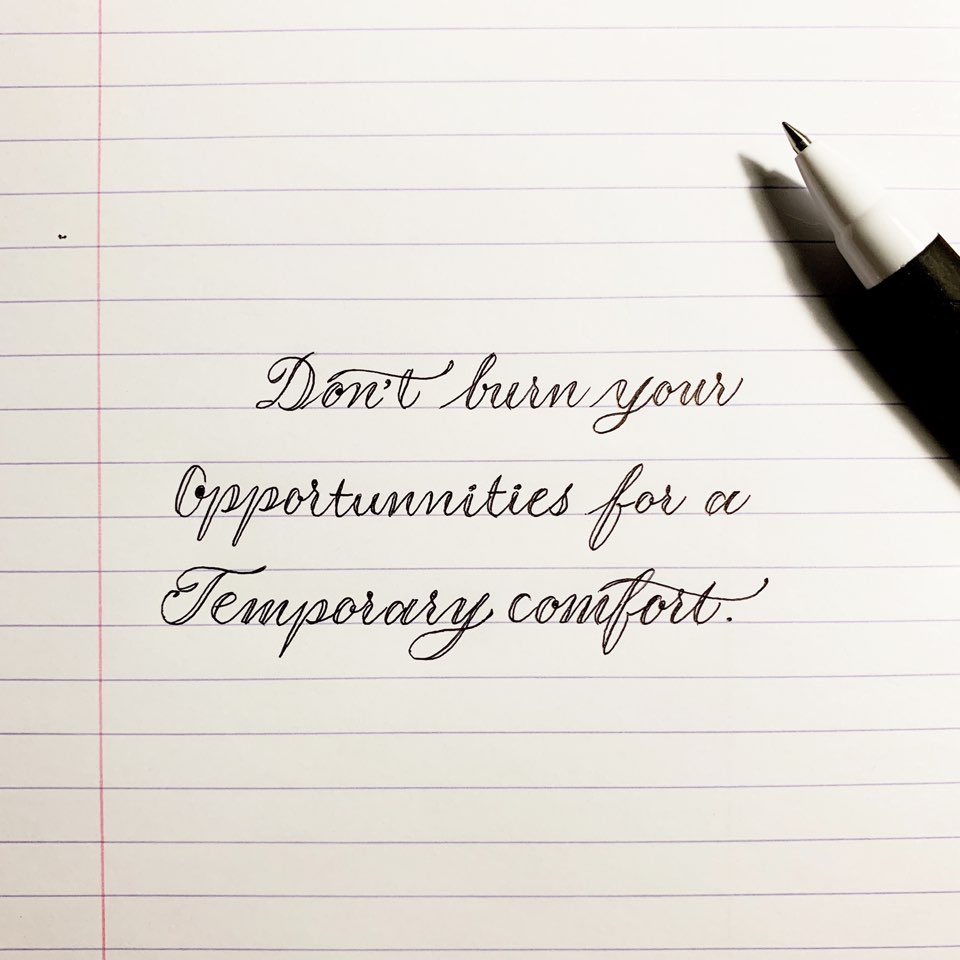 Don't burn your
Opportunnities for a
Temporary comfort.